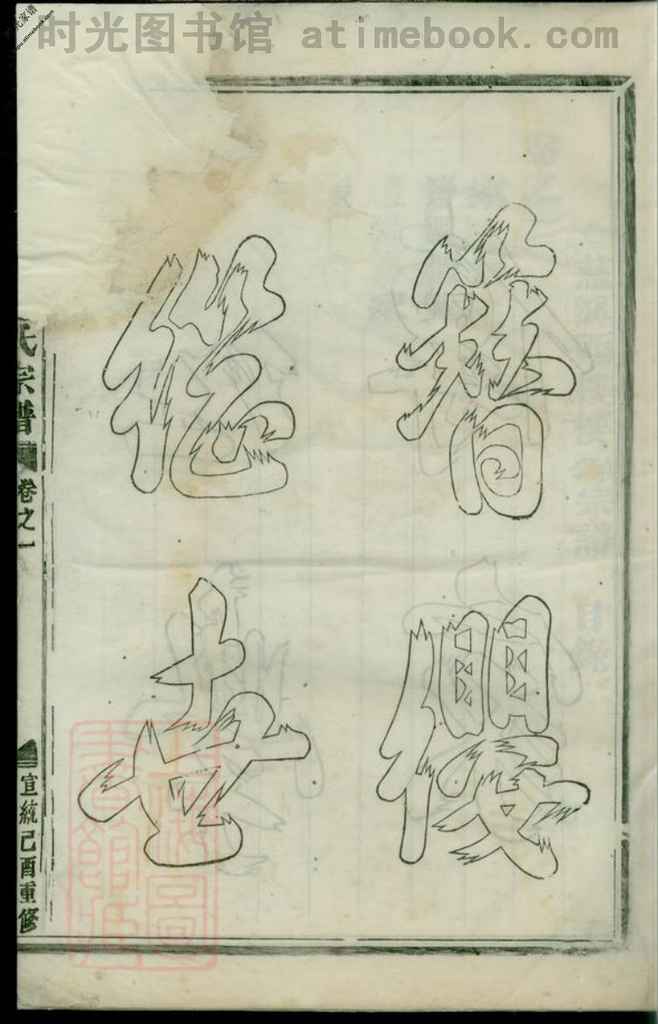 时光图书馆 atimebook.com
簪纓
繼世
氏宗譜
卷之一
宣統己酉重修